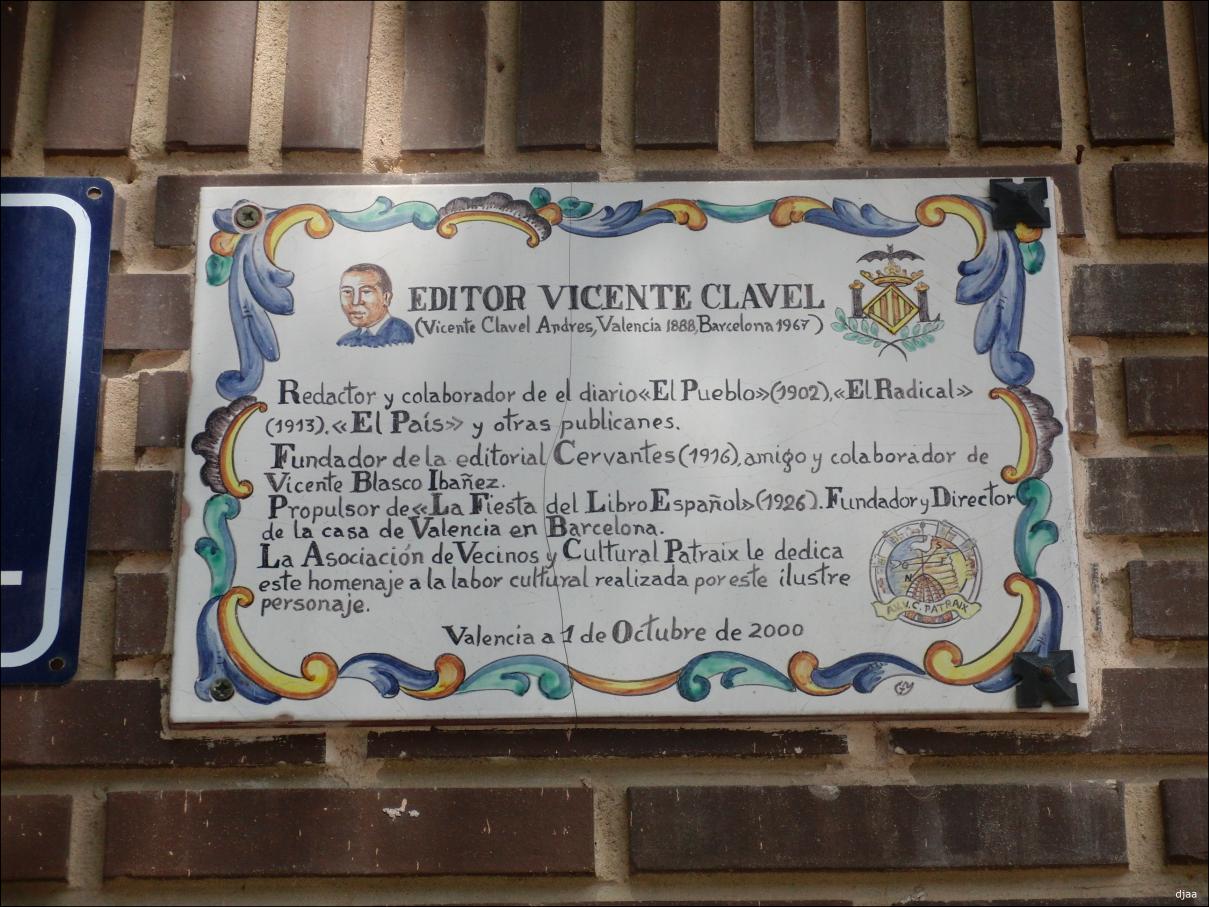 EDITOR VICENTE CLAVEL
(Vicente Clavel Andres, Valencia 1888, Barcelona 1967)
Redactor y colaborador de el diario «El Pueblo» (1902), «El Radical»
(1913), «El País» y otras publicanes.
Fundador de la editorial Cervantes (1916), amigo y colaborador de
Vicente Blasco Ibañez.
Propulsor de «La Fiesta del Libro Español» (1926). Fundador y Director
de la casa de Valencia en Barcelona.
La Asociación de Vecinos y Cultural Patraix le dedica
este homenaje a la labor cultural realizada por este ilustre
personaje.
A.V.V.C. PATRAIX
Valencia a 1 de Octubre de 2000
djaa